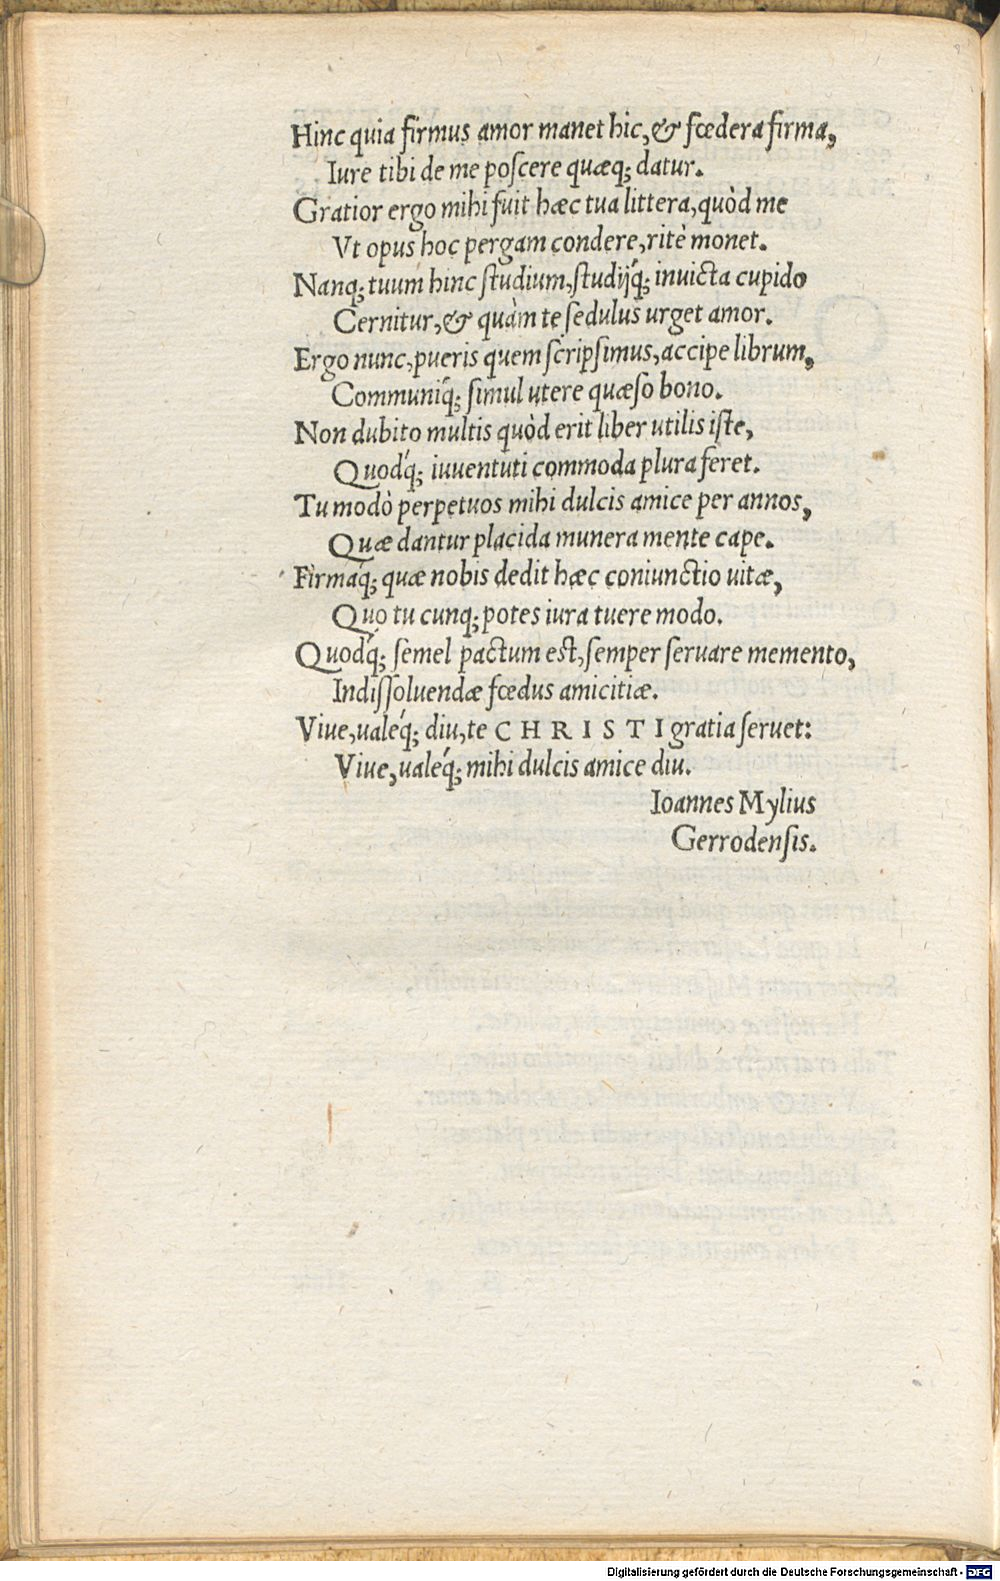 Hinc quia firmus amor manet hic, & fœdera firma,
Iure tibi de me poſcere quæq; datur.
Gratior ergo mihi fuit hæc tua littera, quòd me
Vt opus hoc pergam condere, ritè monet.
Nanq; tuum hinc ſtudium, ſtudijq́; inuicta cupido
Cernitur, & quàm te ſedulus urget amor.
Ergo nunc, pueris quem ſcripſimus, accipe librum,
Communiq́; ſimul utere quæſo bono.
Non dubito multis quòd erit liber utilis iſte,
Quodq́; iuuentuti commoda plura feret.
Tu modò perpetuos mihi dulcis amice per annos,
Quæ dantur placida munera mente cape.
Firmaq́; quæ nobis dedit hæc coniunctio uitæ,
Quo tu cunq; potes iura tuere modo.
Quodq́; ſemel pactum eſt, ſemper ſeruare memento,
Indiſſoluendæ fœdus amicitiæ.
Viue, ualeq́; diu, te CHRISTI gratia ſeruet:
Viue, ualeq́; mihi dulcis amice diu.
Ioannes Mylius
Gerrodenſis.
Digitalisierung gefördert durch die Deutsche Forschungsgemeinschaft - DFG